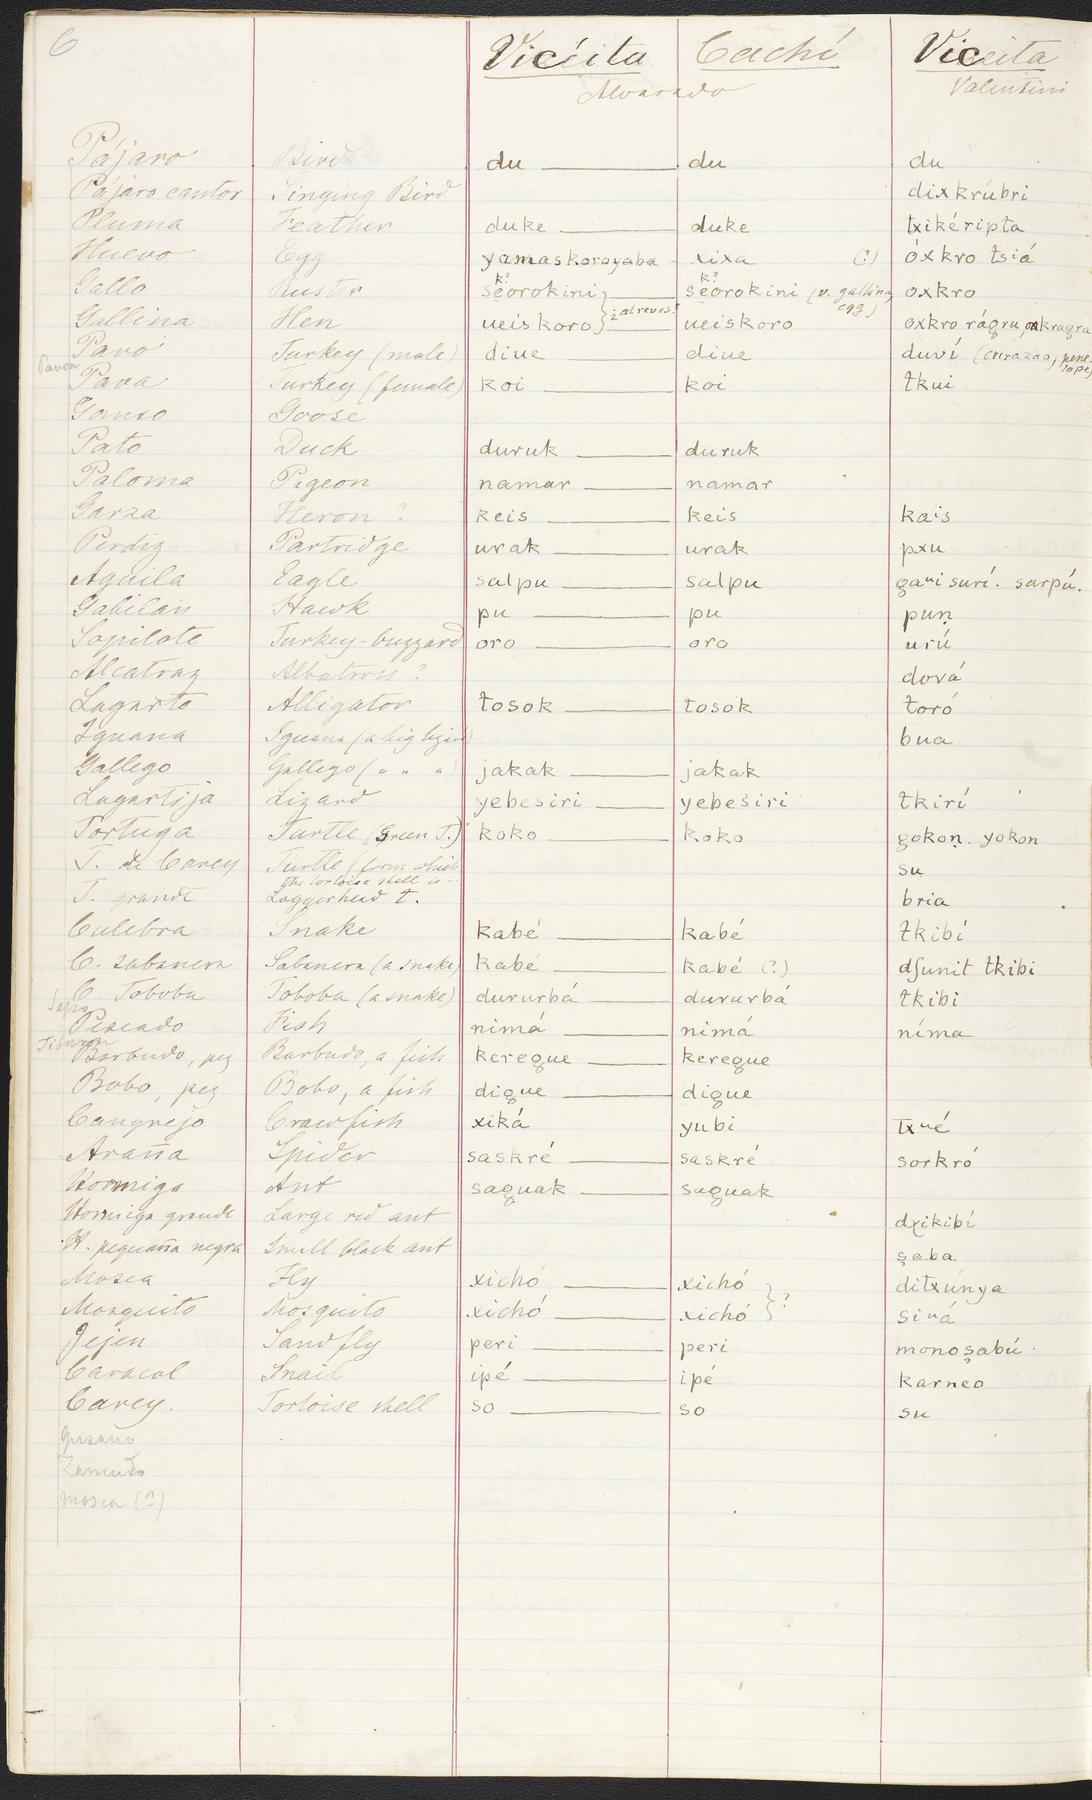 6
Vicéita Cachí Viceita
Alvarado Valentini
Pájaro Bird du du du
Pájaro cantor Singing Bird dixkrúbri
Pluma Feather duke duke txikéripta
Huevo Egg yamaskoroyaba xixa (?) óxkro tsiá
Gallo Ruster seorokini k? seorokini k? (v. gallina, egg) oxkro
Gallina Hen ueiskoro ¿al reves? ueiskoro oxkro rágru, oxkragra
Pavo Turkey (male) diue diue duví (curazao, penelope)
Pavon
Pava Turkey (female) koi koi tkui
Ganso Goose
Pato Duck duruk duruk
Paloma Pigeon namar namar
Garza Heron ? keis keis kais
Perdiz Partridge urak urak pxu
Aguila Eagle salpu salpu gauisurí. sarpú.
Gabilan Hawk pu pu puṇ
Sopilote Turkey-buzzard oro oro urú
Alcatraz Albatross ? dová
Lagarto Alligator tosok tosok toró
Iguana Iguana (a big lizard) bua
Gallego Gallego (" " ") jakak jakak
Lagartija Lizard yebesiri yebesiri tkirí
Tortuga Turtle (Green T.) koko koko gokoṇ. yokon
T. de Carey Turtle (from which the tortoise shell is — su
T. grande Loggerhead t. bria
Culebra Snake kabé kabé tkibí
C. sabanera Sabanera (a snake) kabé kabé (?) dʃunit tkibi
C. Toboba Toboba (a snake) dururbá dururbá tkibi
Sapo
Pescado Fish nimá nimá níma
Tiburon
Barbudo, pez Barbudo, a fish keregue keregue
Bobo, pez Bobo, a fish digue digue
Cangrejo Crawfish xiká yubi txué
Araña Spider saskré saskré sorkró
Hormiga Ant saguak saguak
Hormiga grande Large red ant dxikibí
H. pequeña negra Small black ant ṣaba
Mosca Fly xichó xichó ditxúnya
Mosquito Mosquito xichó xichó ? siuá
Jejen Sandfly peri peri monoṣabú
Caracol Snail ipé ipé karneo
Carey. Tortoise shell so so su
Gusano
Zancudo
Mosca (?)